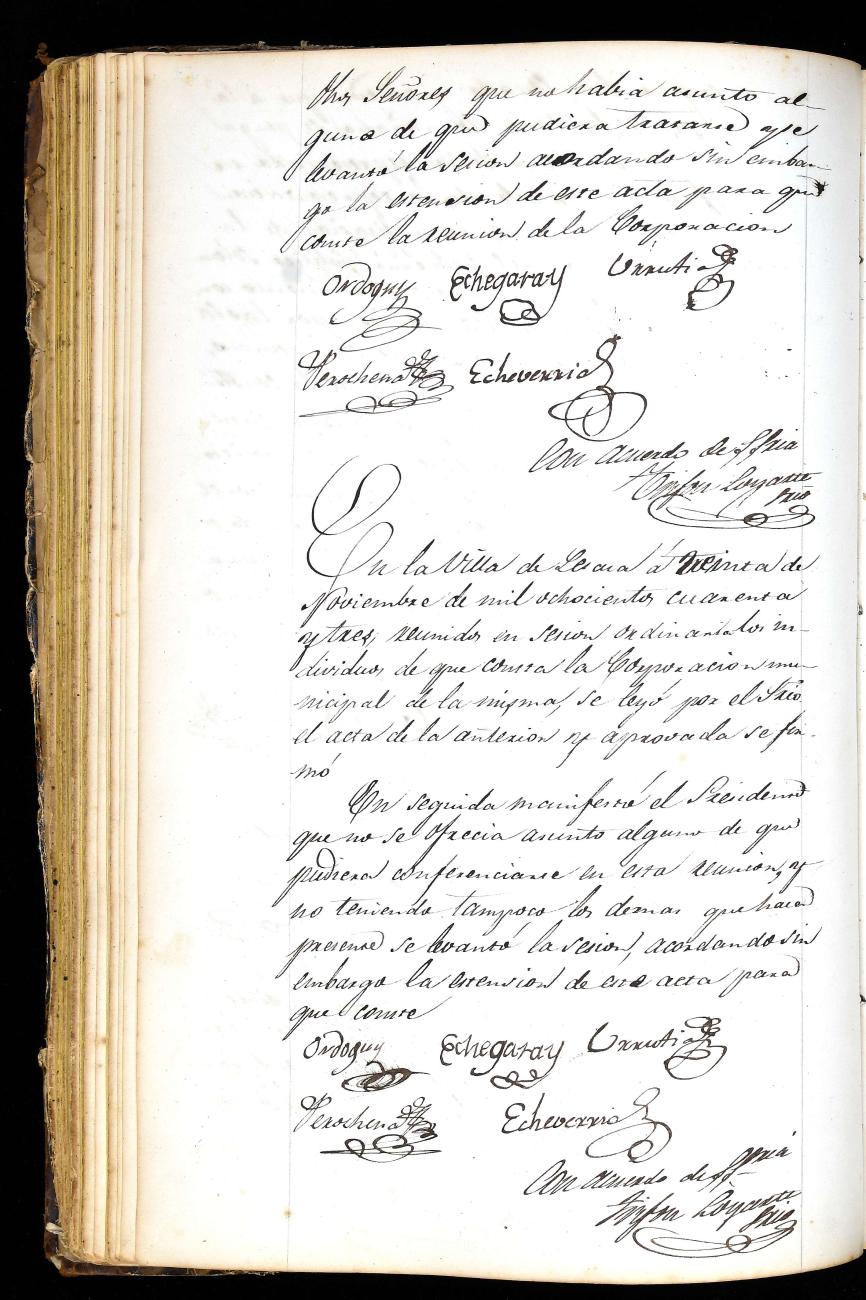 dhos Señores que no habia asunto al-
guno de que pudiera tratarse y se
levantó la sesion acordando sin embar-
go la estension de este acta para que
conste la reunion de la Corporacion
Ordoguy Echegaray Urrutia
Perochena Echeverria
Con acuerdo de
Loyarte
Srio
En la Villa de Lesaca á treinta de
Noviembre de mil ochocientos cuarenta
y tres, reunidos en sesion ordinaria los in-
dividuos de que consta la Corporacion mu-
nicipal de la misma, se leyó por el Srio
el acta de la anterior y aprovada se fir-
mó
En seguida manifestó el Presidente
que no se ofrecia asunto alguno de que
pudiera conferenciarse en esta reunion, y
no teniendo tampoco los demas que hacer
presente se levantó la sesion, acordando sin
embargo la estension de este acta para
que conste
Ordoguy Echegaray Urrutia
Perochena Echeverria
Con acuerdo de
Loyarte
Srio